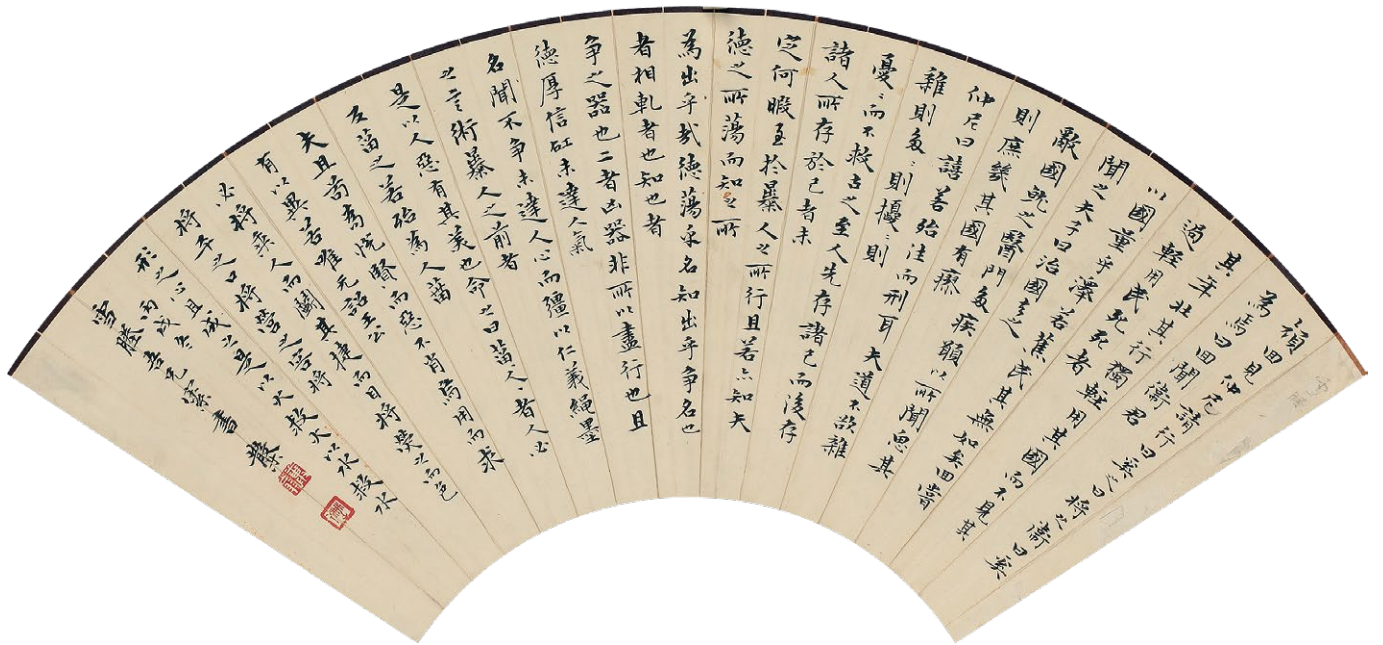 顏回見仲尼請行曰奚之曰將之衛曰奚
為焉曰回聞衛君
其年壯其行獨輕用其國而不見其
過輕用民死死者
以國量乎澤若蕉民其無如矣回嘗
聞之夫子曰治國去之
敵國就之醫門多疾願以所聞思其
則庶幾其國有瘳
仲尼曰譆若殆往而刑耳夫道不欲雜
雜則多〻則擾〻則
憂〻而不救古之至人先存諸己而後存
諸人所存於己者未
定何暇至於暴人之所行且若亦知夫
德之所蕩而知之所
為出乎哉德蕩乎名知出乎争名也
者相軋者也知也者
争之器也二者凶器非所以盡行也且
德厚信矼未達人氣
名聞不争未達人心而彊以仁義繩墨
之言術暴人之前者
是以人惡有其美也命之曰菑人〻者人必
反菑之若殆為人菑
夫且苟為悦賢而惡不肖焉用而求
有以異若唯无詔王公
必將乘人而鬭其捷而目將熒之而色
將平之口將營之容將
形之心且成之是以火救火以水救水
丙戌冬
雪塍吾兄 書